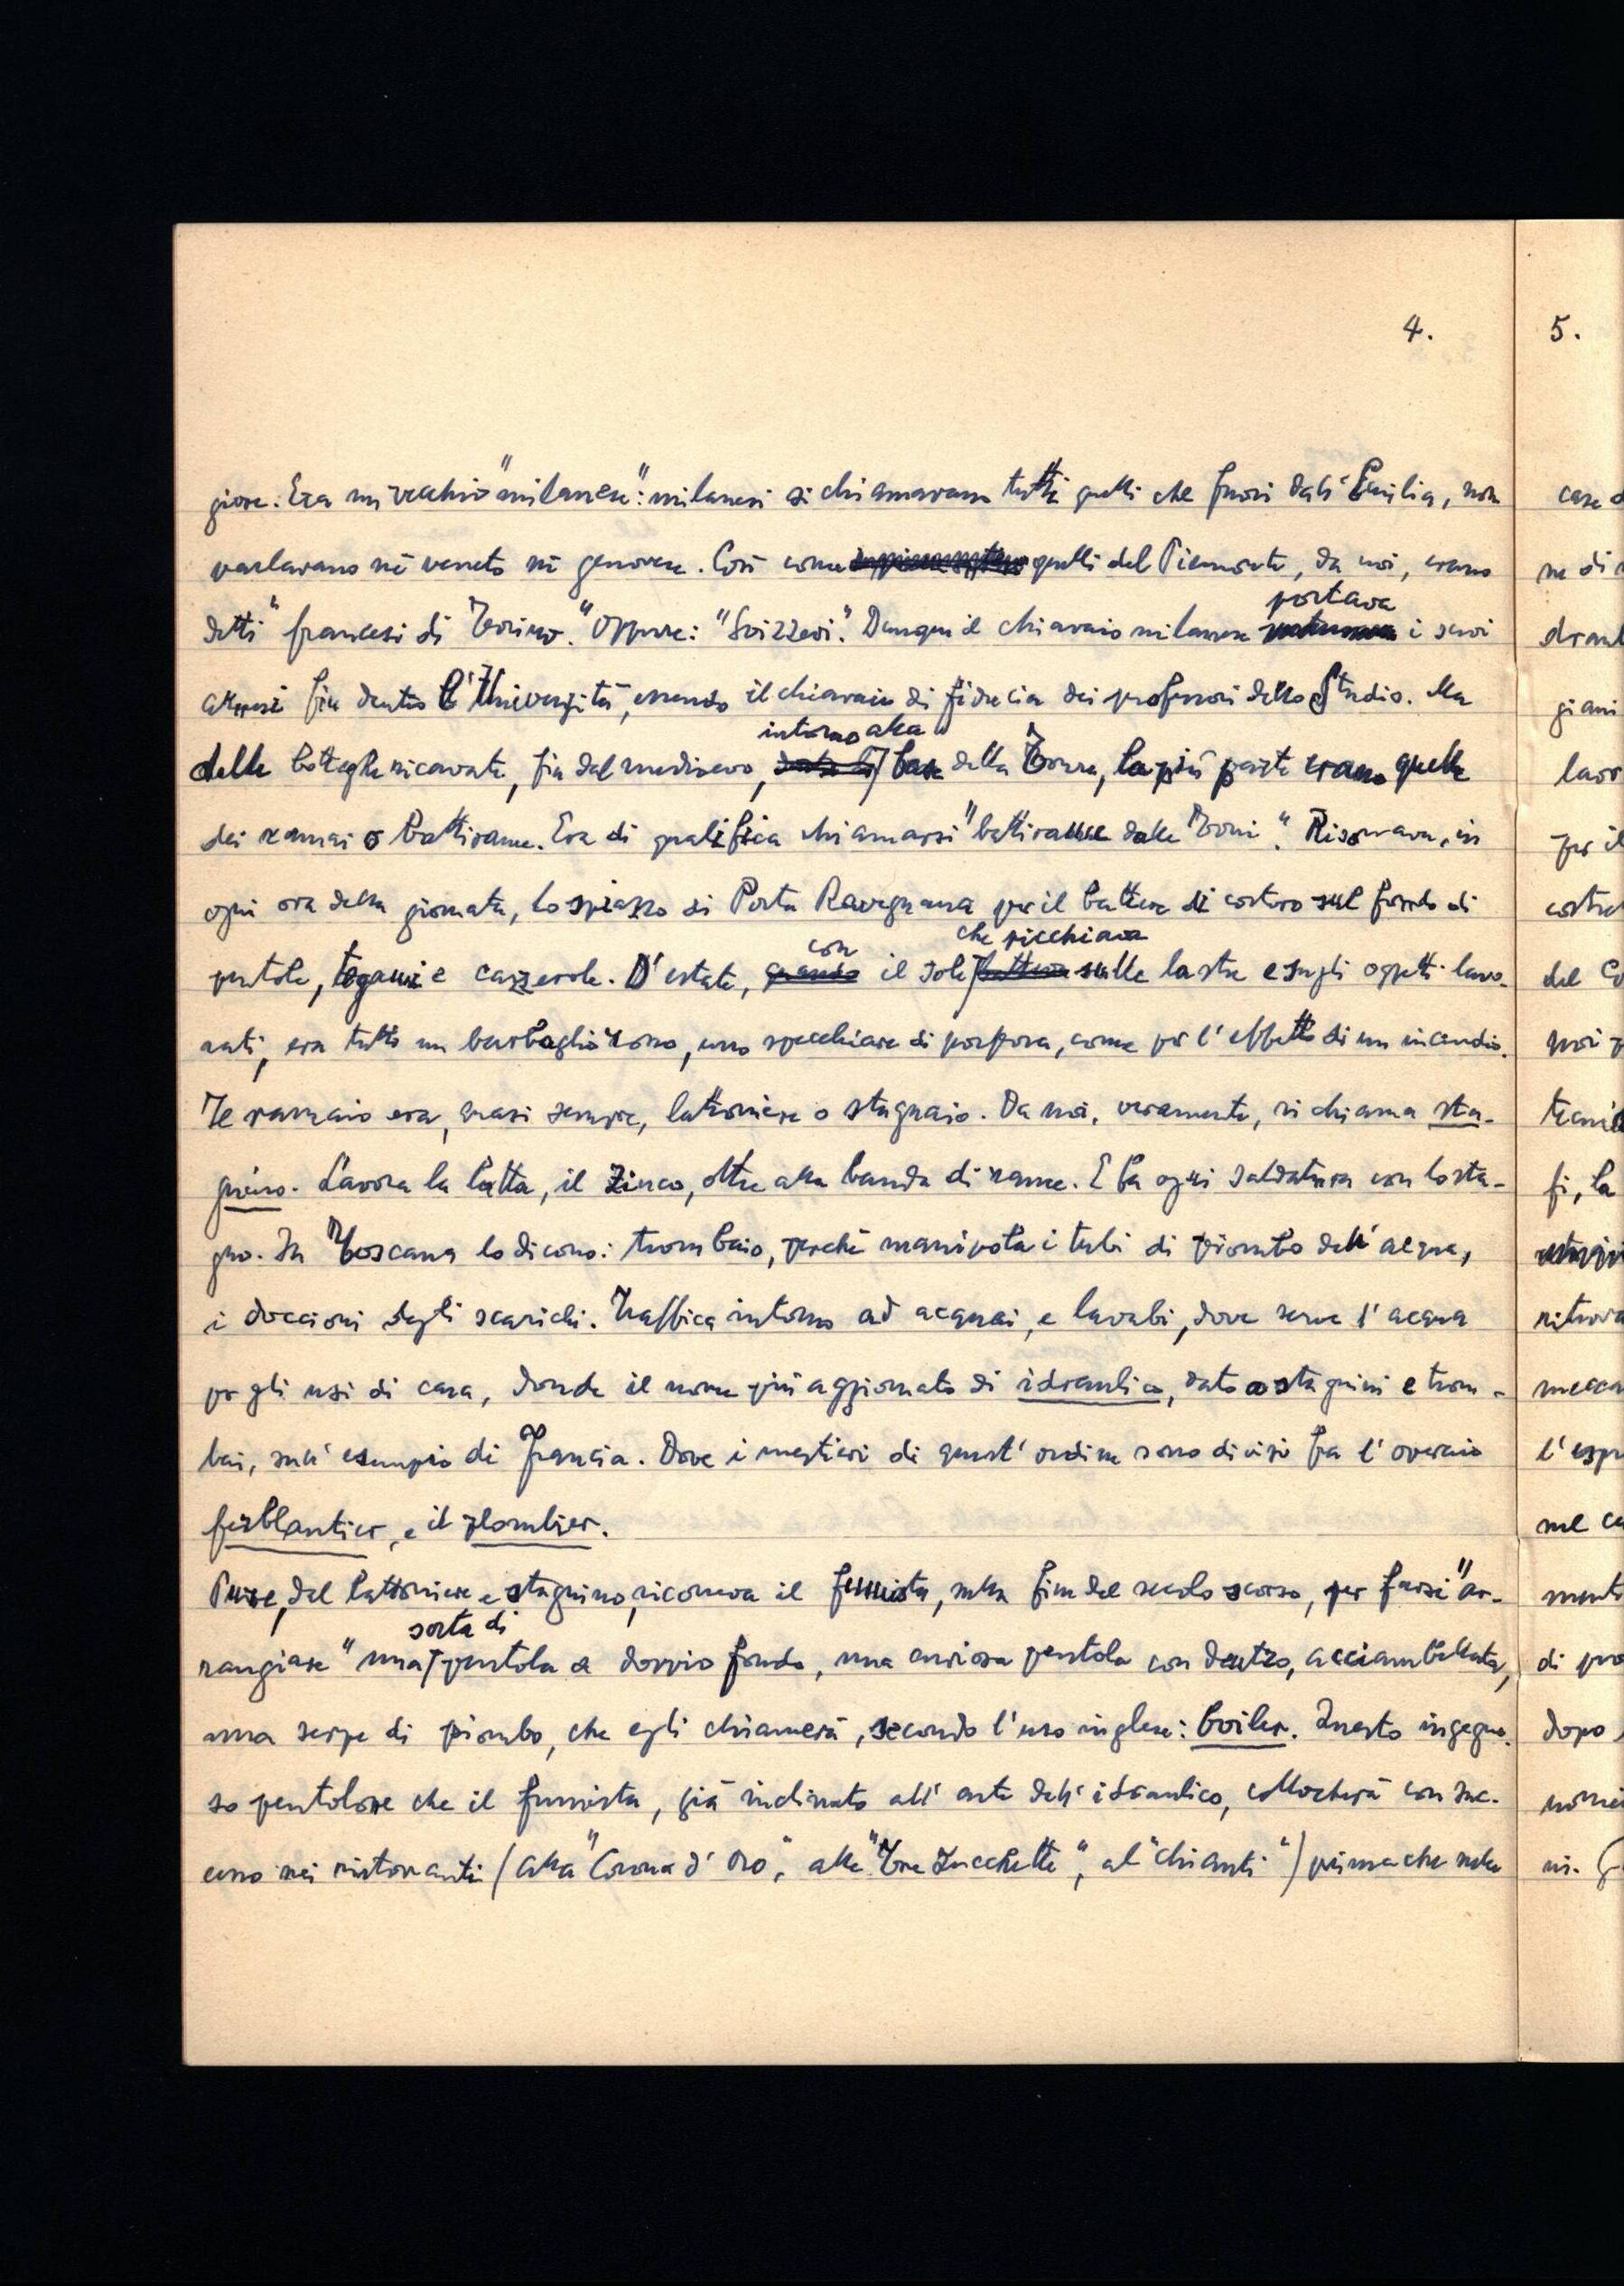 4.
giose. Era un vecchio "milanese": milanesi si chiamavano tutti quelli che fuori dall'Emilia, non
parlavano né veneto né genovese. Così come quelli del Piemonte, da noi, erano
detti "francesi di Torino." Oppure: "Svizzeri." Dunque il chiavaio milanese portava i suoi
fin dentro l'Università, essendo il chiavaio di fiducia dei professori dello Studio. Ma
delle botteghe ricavate, fin dal medioevo, intorno alla base della Torre, la più parte erano quelle
dei ramai o battirame. Era di qualifica chiamarsi "battirame delle Torri". Risonava, in
ogni ora della giornata, lo spiazzo di Porta Ravegnana per il battere di costoro sul fondo di
pentole, tegami e cazzerole. D'estate, con il sole che picchiava sulle lastre e sugli oggetti lavo-
rati, era tutto un barbaglio rosso, uno specchiare di porpora, come per l'effetto di un incendio.
Il ramaio era, quasi sempre, lattoniere o stagnaio. Da noi, veramente, si chiama sta-
gnino. Lavora la latta, il zinco, oltre alla banda di rame. E fa ogni saldatura con lo sta-
gno. In Toscana lo dicono: trombaio, perché manipola i tubi di piombo dell'acqua,
i doccioni degli scarichi. Traffica intorno ad acquai, e lavabi, dove serve l'acqua
per gli usi di casa, donde il nome più aggiornato di idraulico, dato a stagnini e trom-
bai, sull'esempio di Francia. Dove i mestieri di quest'ordine sono divisi fra l'operaio
ferblantier, e il plombier.
Pure, dal lattoniere e stagnino, ricorreva il fumista, nella fine del secolo scorso, per farsi "ar-
rangiare" una sorta di pentola a doppio fondo, una curiosa pentola con dentro, acciambellata,
una serpe di piombo, che egli chiamerà, secondo l'uso inglese: boiler. Questo ingegno-
so pentolone che il fumista, già inclinato all'arte dell'idraulico, collocherà con suc-
cesso nei ristoranti (alla "Corona d'oro", alle "Tre Zucchette", al "chianti") prima che nelle
5.